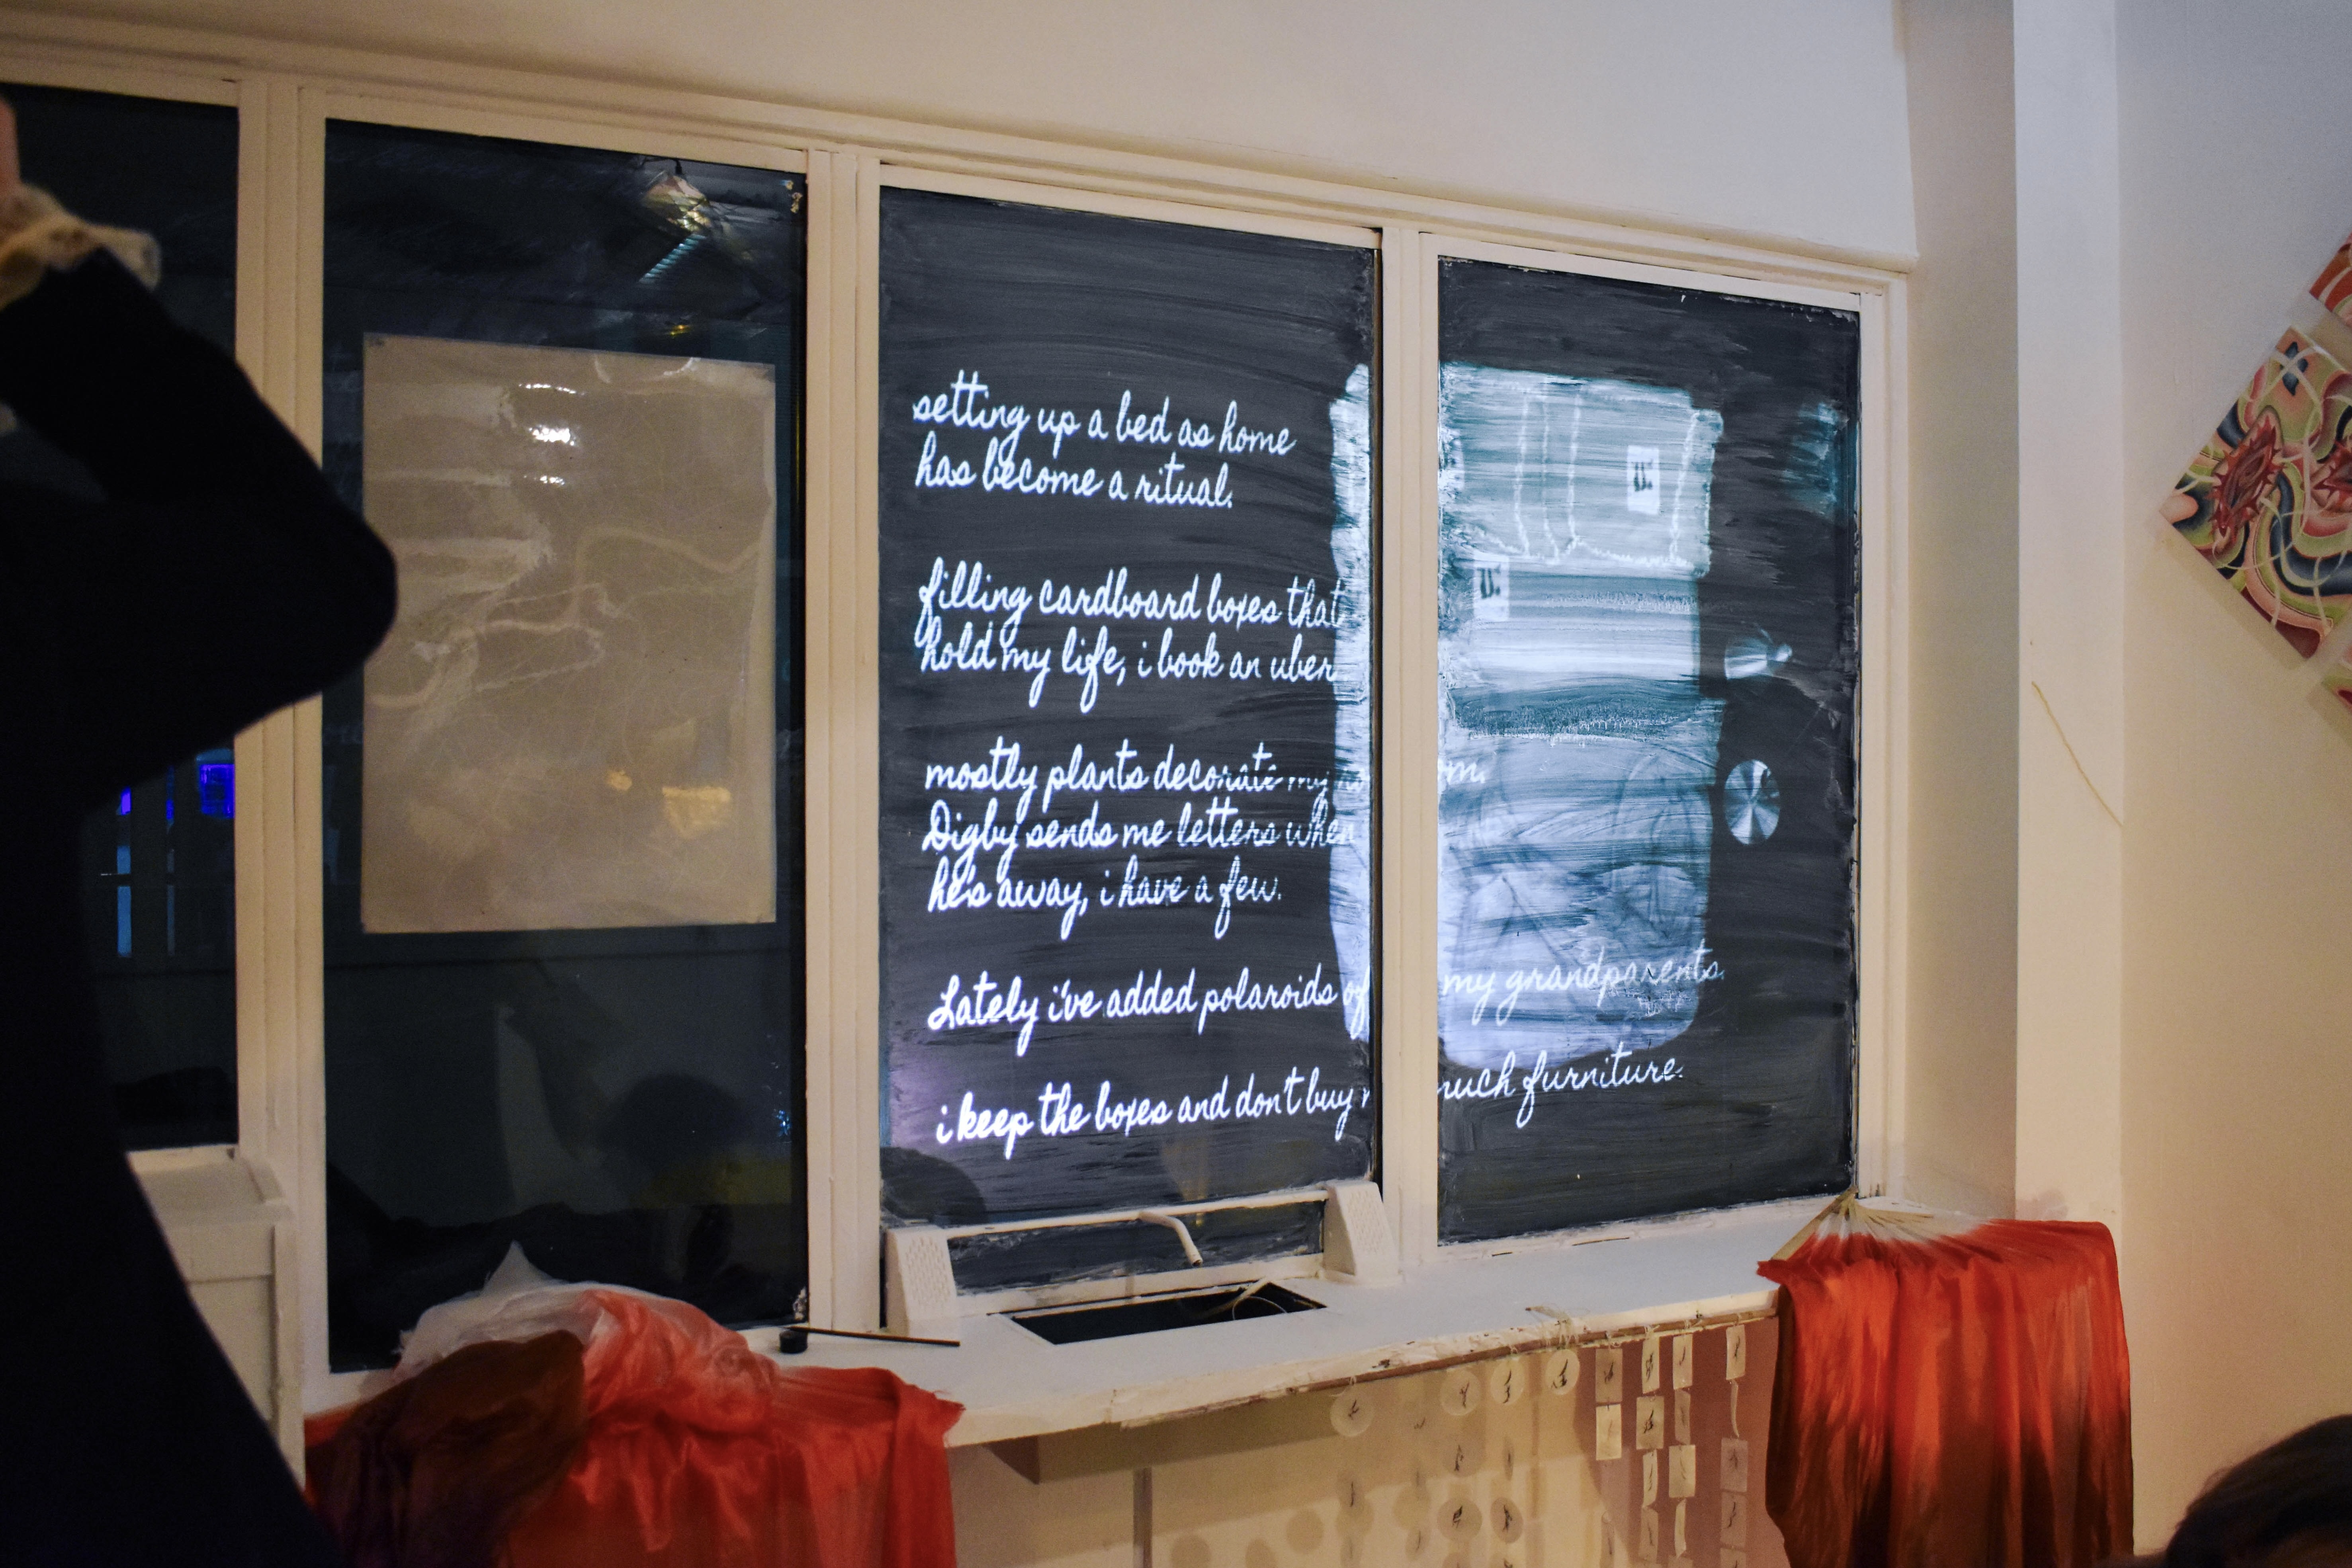 setting up a bed as home
has become a ritual.
filling cardboard boxes that
hold my life, i book an uber.
mostly plants decorate my
Digby sends me letters when
he's away, i have a few.
Lately i've added polaroids of my grandparents.
i keep the boxes and don't buy much furniture.